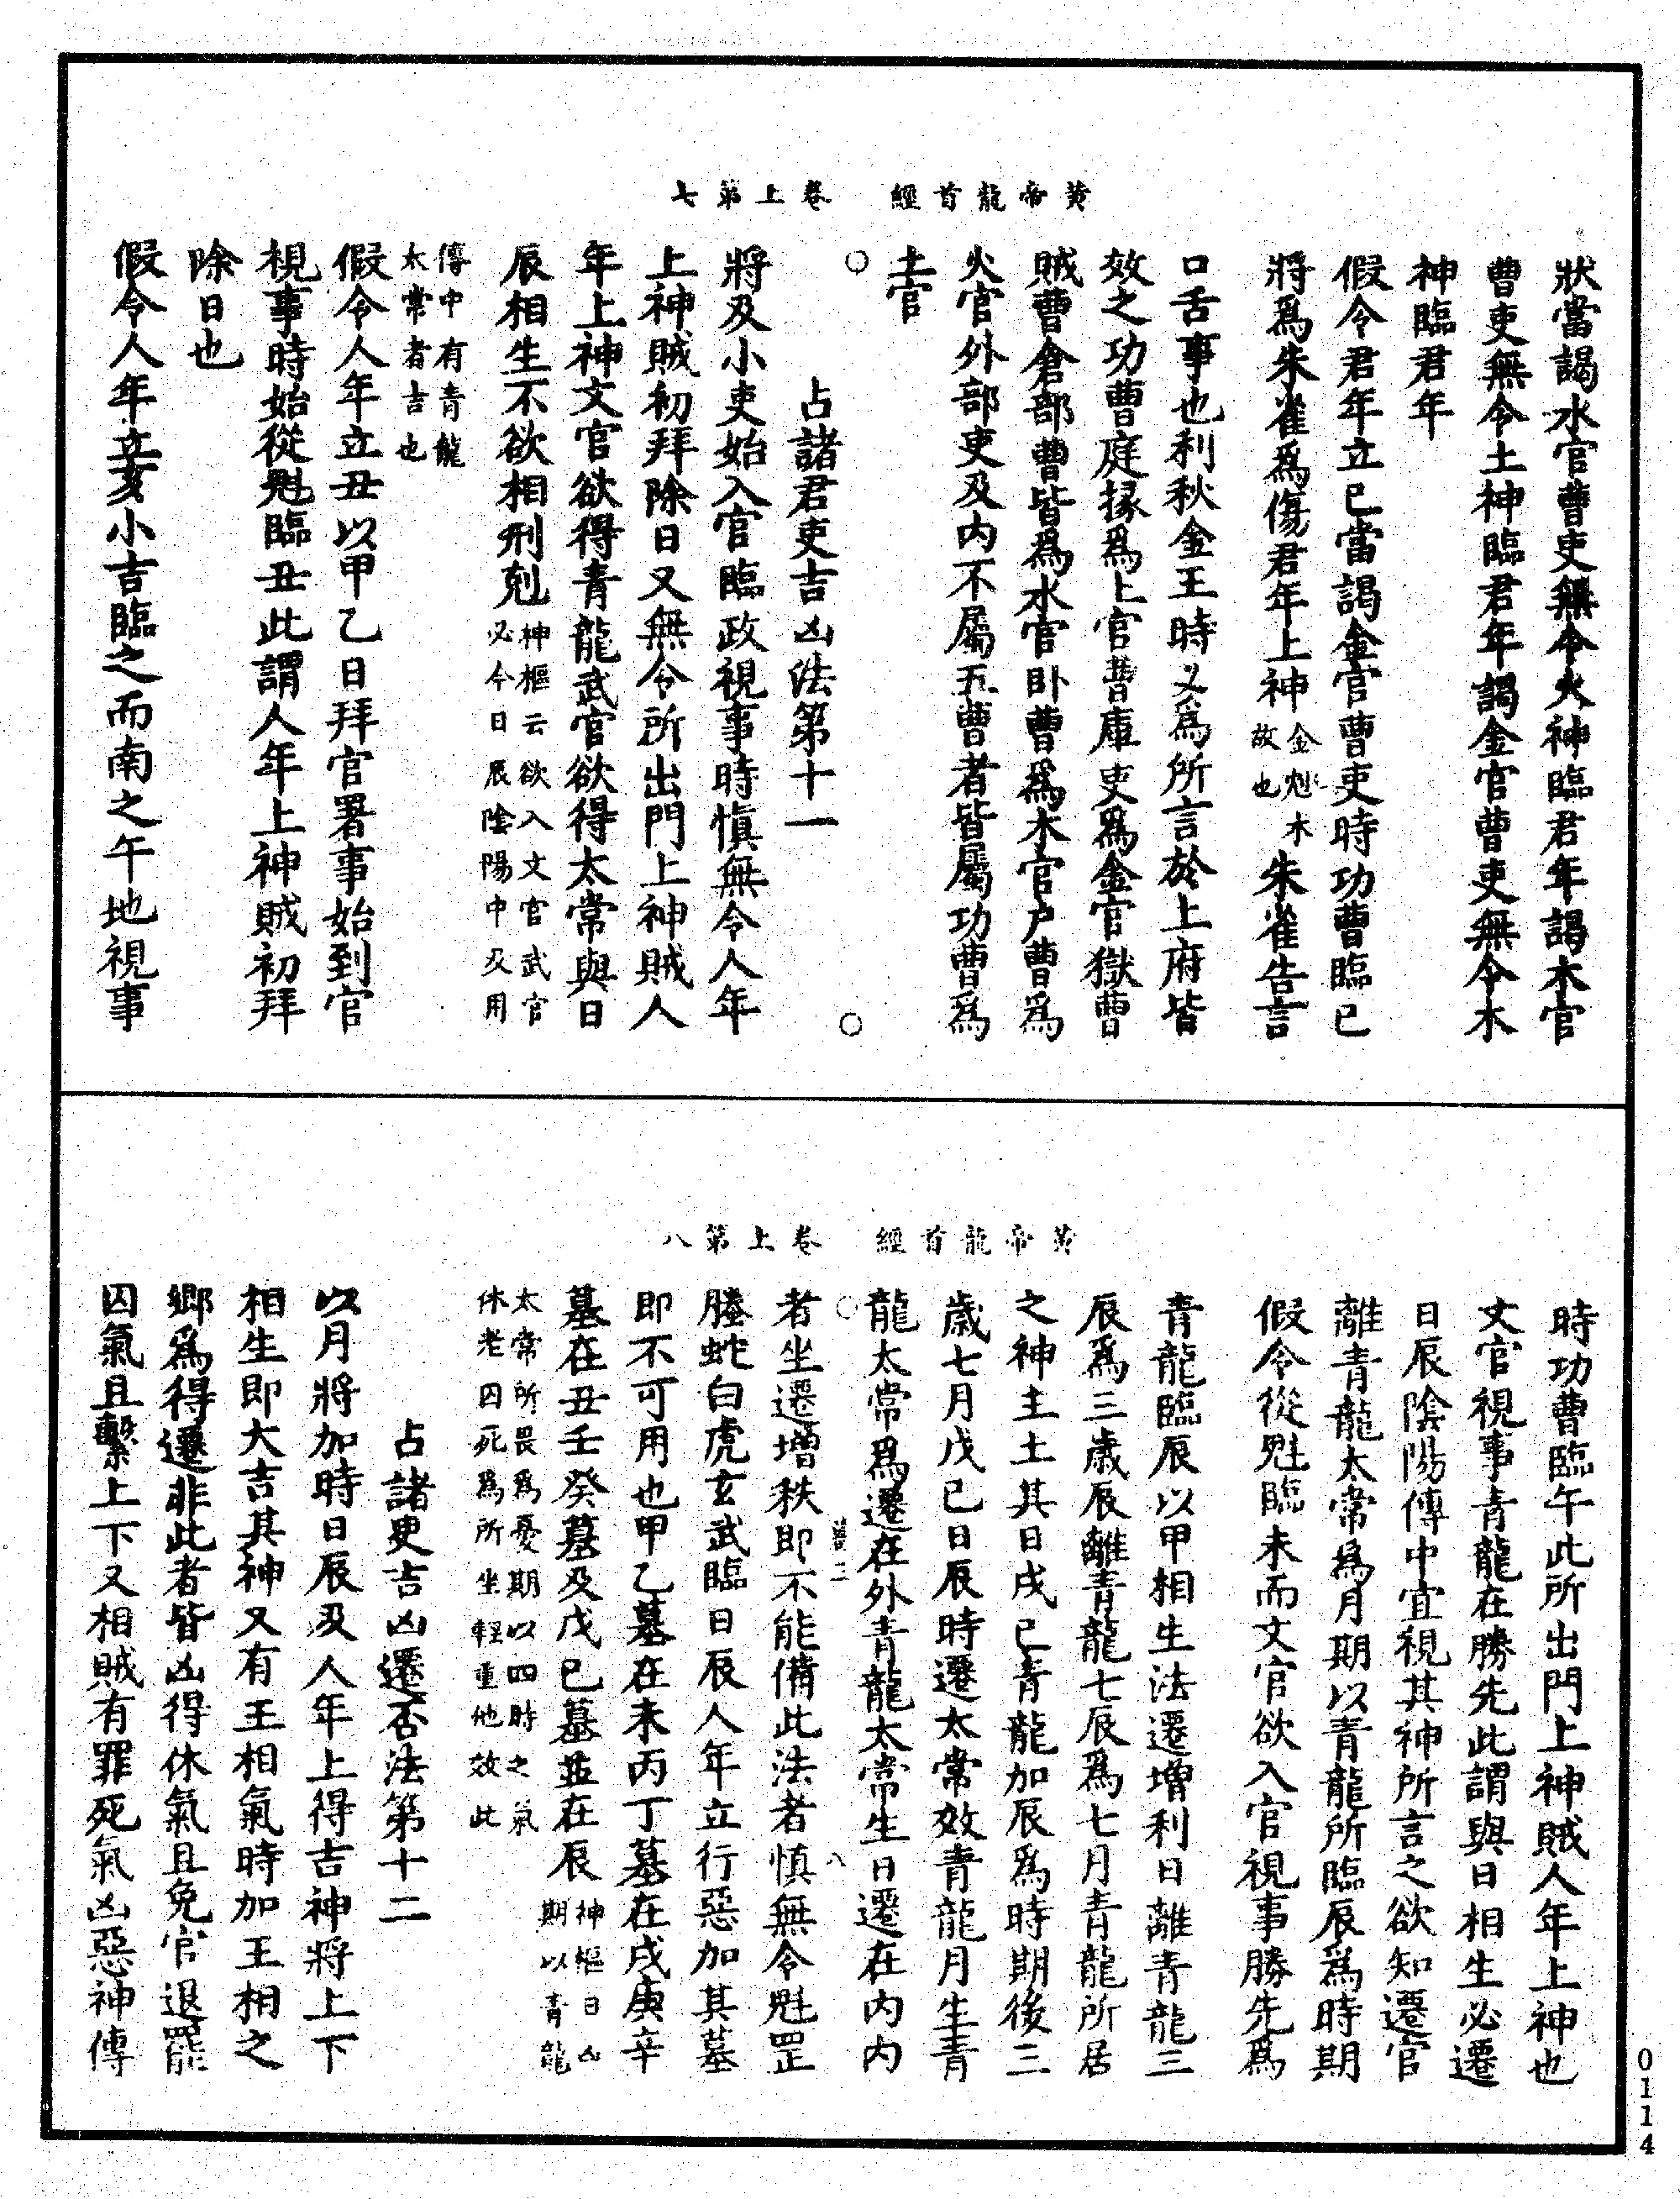 黃帝龍首經 卷上第七
狀當謁水官曹吏無令火神臨君年謁木官
曹吏無令土神臨君年謁金官曹吏無令木
神臨君年
假令君年立巳當謁金官曹吏時功曹臨巳
將爲朱雀爲傷君年上神金尅木故也朱雀告言
口舌事也利秋金王時又爲所言於上府皆
效之功曹庭掾爲上官曹庫吏爲金官獄曹
賊曹倉部曹皆爲水官卧曹爲木官户曹爲
火官外部吏及内不屬五曹者皆屬功曹爲
土官
占諸君吏吉凶法第十一
將及小吏始入官臨政視事時慎無令人年
上神賊初拜除日又無令所出門上神賊人
年上神文官欲得青龍武官欲得太常與日
辰相生不欲相刑剋神樞云欲入文官武官必今日辰陰陽中及用
傳中有青龍太常者吉也
假令人年立丑以甲乙日拜官署事始到官
視事時始從魁臨丑此謂人年上神賊初拜
除日也
假令人年立亥小吉臨之而南之午地視事
黃帝龍首經 卷上第八
時功曹臨午此所出門上神賊人年上神也
文官視事青龍在勝先此謂與日相生必遷
日辰陰陽傳中宜視其神所言之欲知遷官
離青龍太常爲月期以青龍所臨辰爲時期
假令從魁臨未而文官欲入官視事勝先爲
青龍臨辰以甲相生法遷增利日離青龍三
辰爲三歲辰離青龍七辰爲七月青龍所居
之神主土其日戌己青龍加辰爲時期後三
歲七月戊己日辰時遷太常效青龍月生青
龍太常爲遷在外青龍太常生日遷在内内
者坐遷增秩即不能備此法者慎無令魁罡
螣蛇白虎玄武臨日辰人年立行惡加其墓
即不可用也甲乙墓在未丙丁墓在戌庚辛
墓在丑壬癸墓及戊己墓並在辰神樞曰凶期以青龍
太常所畏爲憂期以四時之氣休老囚死爲所坐輕重他效此
占諸吏吉凶遷否法第十二
以月將加時日辰及人年上得吉神將上下
相生即大吉其神又有王相氣時加王相之
鄉爲得遷非此者皆凶得休氣且免官退罷
囚氣且繫上下又相賊有罪死氣凶惡神傳
0114